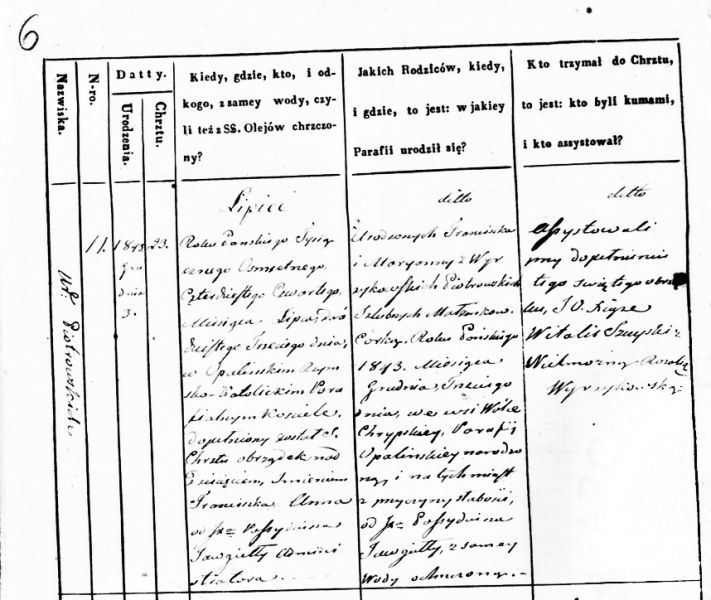 6
Nazwiska.
N-ro.
Datty.
Urodzenia.
Chrztu.
Kiedy, gdzie, kto, i od-
kogo, z samey wody, czy-
li też z SS. Olejów chrzczo-
ny?
Jakich Rodziców, kiedy,
i gdzie, to jest: w jakiey
Parafii urodził się?
Kto trzymał do Chrztu,
to jest: kto byli kumami,
i kto assystował?
Lipiec
ditto
ditto
W. Piotrowskich
11.
1843
Gru
dnia
3.
23.
Roku Pańskiego Tysią
cznego Osmsetnego,
Czterdziestego Czwartego,
Miesiąca Lipca, dwó
dziestego Trzeciego dnia,
w Opalinskim Rzym
sko-Katolickim Para
fialnym Kosciele,
dopełniony został S.
Chrztu obrządek nad
Dziecięciem, Imieniem
Franciszka Anna
od
Jawgiełły Admini
stratora.
Urodzonych Franciszka
i Maryanny z Wyr
zykowskich Piotrowskich
Szlubnych Małżonków.
Corka, Roku Pańskiego
1843. Miesiąca
Grudnia, Trzeciego
dnia, we wsi Wólce
Chrypskiey, Parafii
Opalinskiey narodzo
na, i natychmiast
z przyczyny słabości,
od
Jawgiełły, z samey
Wody ochrzczona.
Assystowali
przy dopełnieniu
tego swiętego obrzą
dku, J. O. Xiąże
Witalis
Wielmożną Rozalią
Wyrzykowską